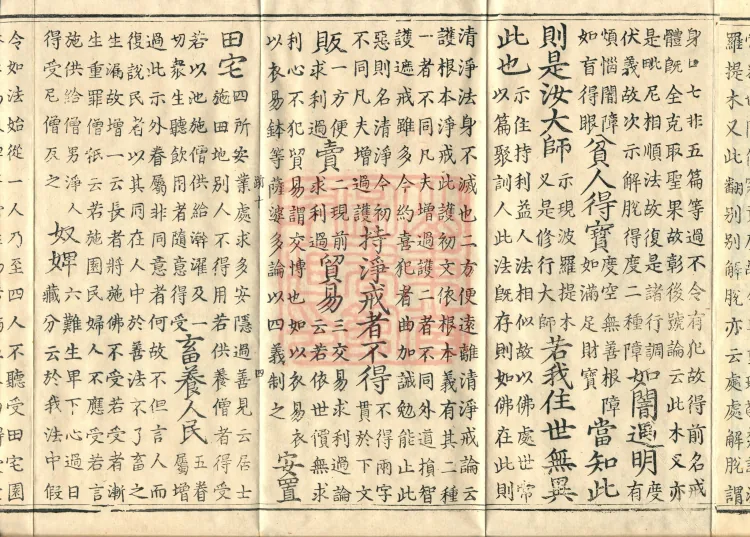 羅提木叉此翻別別解脫亦云處處解脫謂
身口七非五篇等過不令有犯故得前名戒
體既全克取聖果故彰後號論云此木叉亦
是毗尼相順法故復是諸行調
伏義故次示解脫得度二種障
如闇遇明
度
有
煩惱闇障
如盲得眼
貧人得寶
度空無善根障
如滿足財寶
當知此
則是汝大師
示現波羅提木叉
又是修行大師
若我住世無異
此也
示住持利益人法相似故以佛處世常
以篇聚訓人此法既存則如佛在此則
清淨法身不滅也二方便遠離清淨戒論云
護根本淨戒此護初文依根本義有其二種
一者不同凡夫增過護二者不同外道損智
護遮戒雖多今約喜犯者曲加誡勉能止此
惡則名清淨今初令
不同凡夫增過護
持淨戒者不得
不得兩字
貫於下文
販
一方便
求利過
賣
二現前
求利過
貿易
三交易求利過論
云若依世價無求
利心不犯貿易謂交博也如以衣易衣
以衣易鉢等薩婆多論以四義制之
安置
田宅
四所安業處求多安隱過善見云居士
施田地別人不得用若供養僧者得受
若以池施僧供給澣濯及一
切衆生聽飲用者隨意得受
畜養人民
五眷
屬增
過此示外眷屬非同意者何故不但言人而
復說民者以其同在人中於善法不了畜之
生漏故增一云長者將施佛不受若受者漸
生重罪僧祇云若施園民婦人不應受若言
施供給僧男淨人
得受尼僧反之
奴婢
六難生卑下心過日
藏分云於我法中假
令如法始從一人乃至四人不聽受田宅園